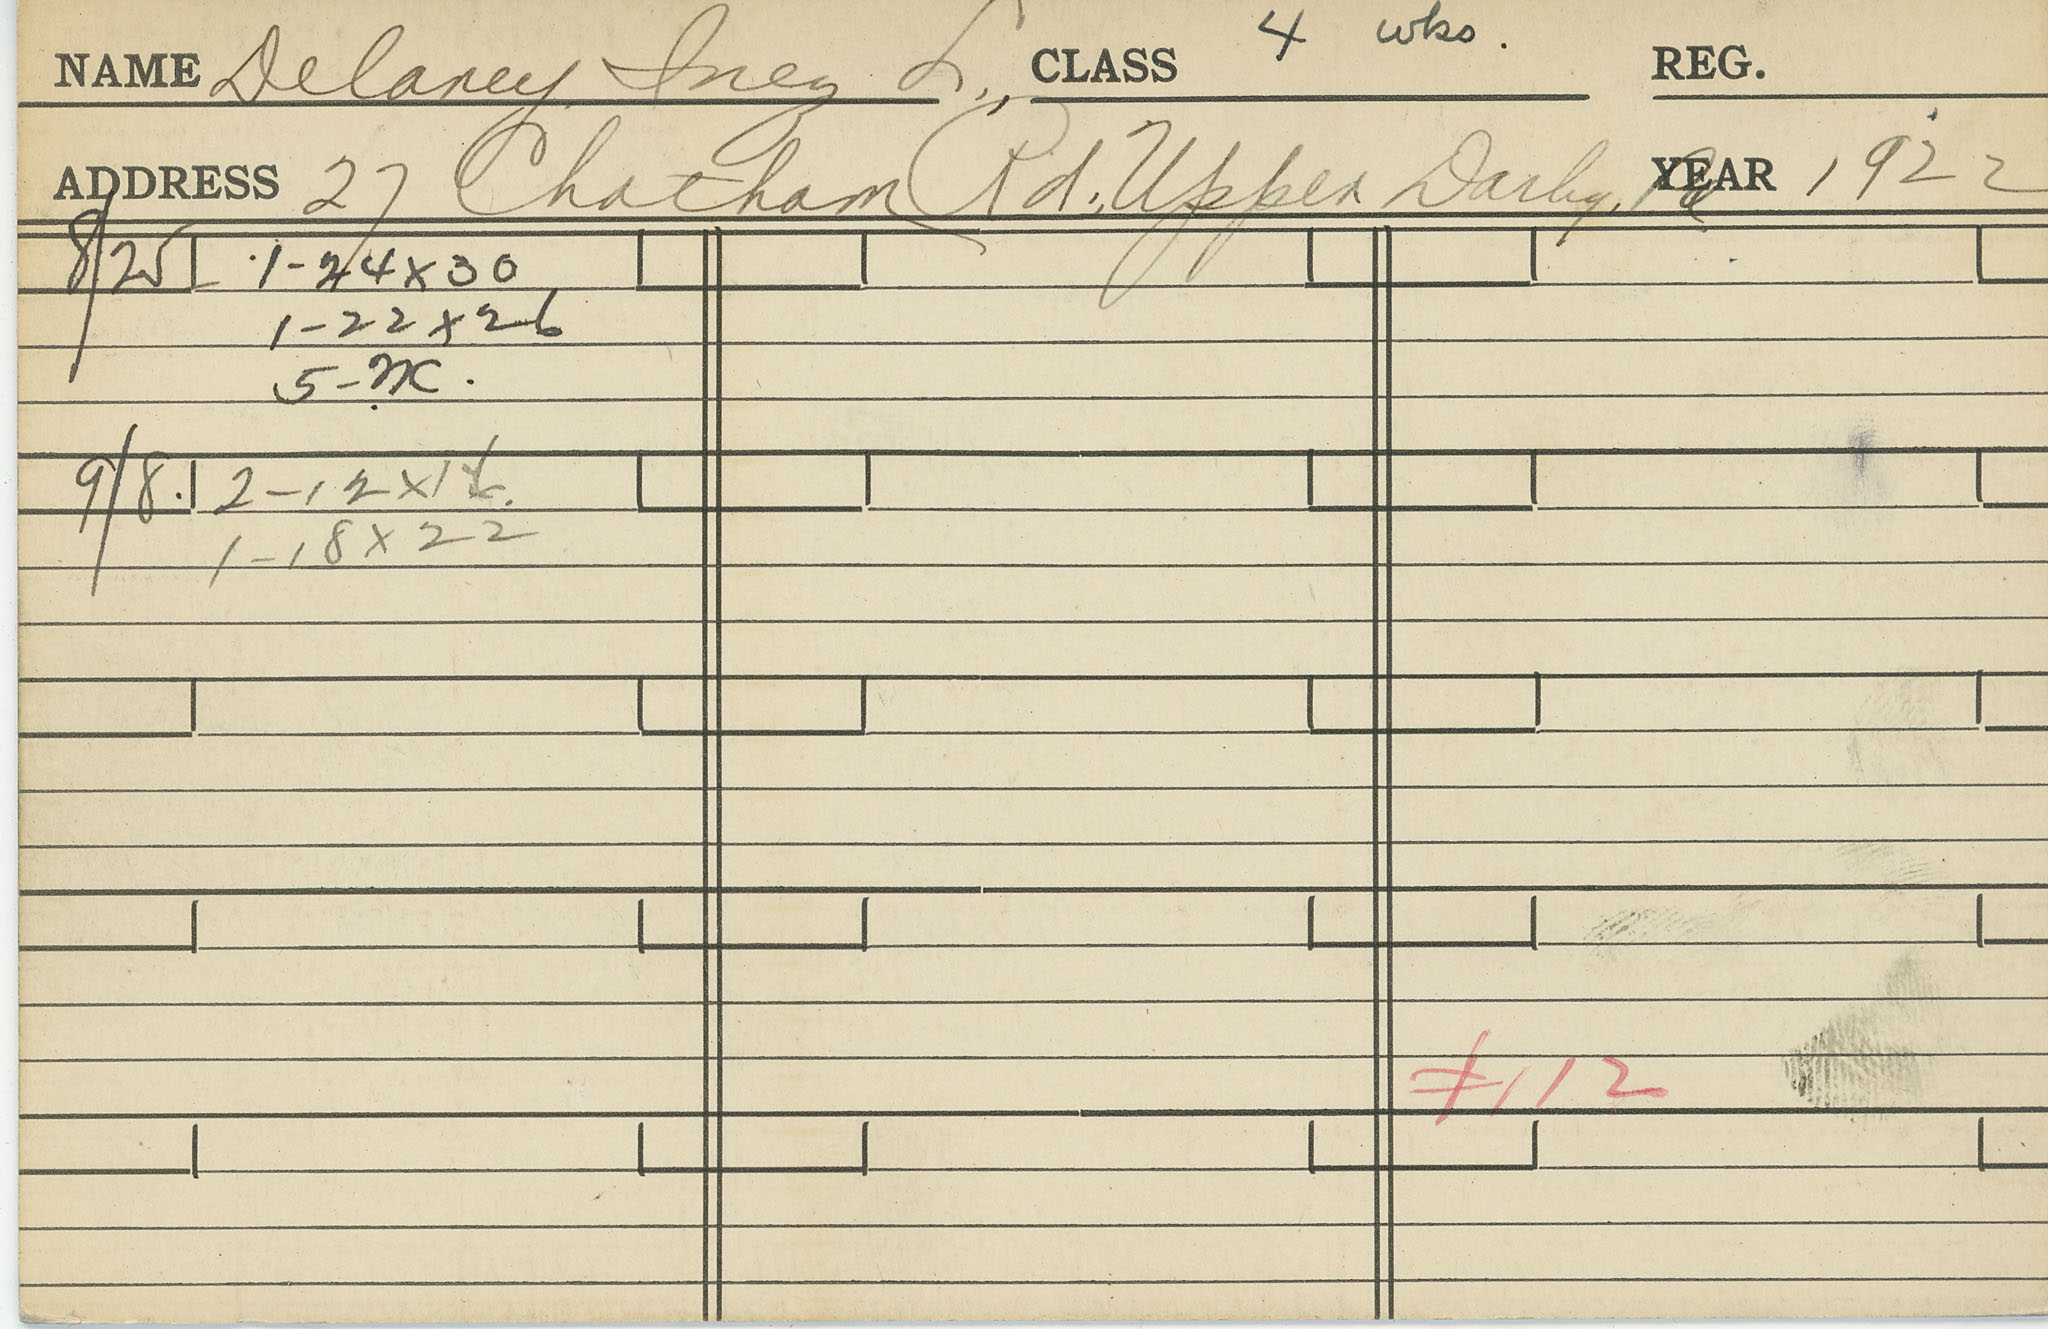 NAME Delaney, Inez L., CLASS 4 wks. REG.
ADDRESS 27 Chatham Rd., Upper Darby, Pa YEAR 1922
8/25 1-24x30
1-22x26
5-
9/8. 2-12x16.
1-18x22
#112